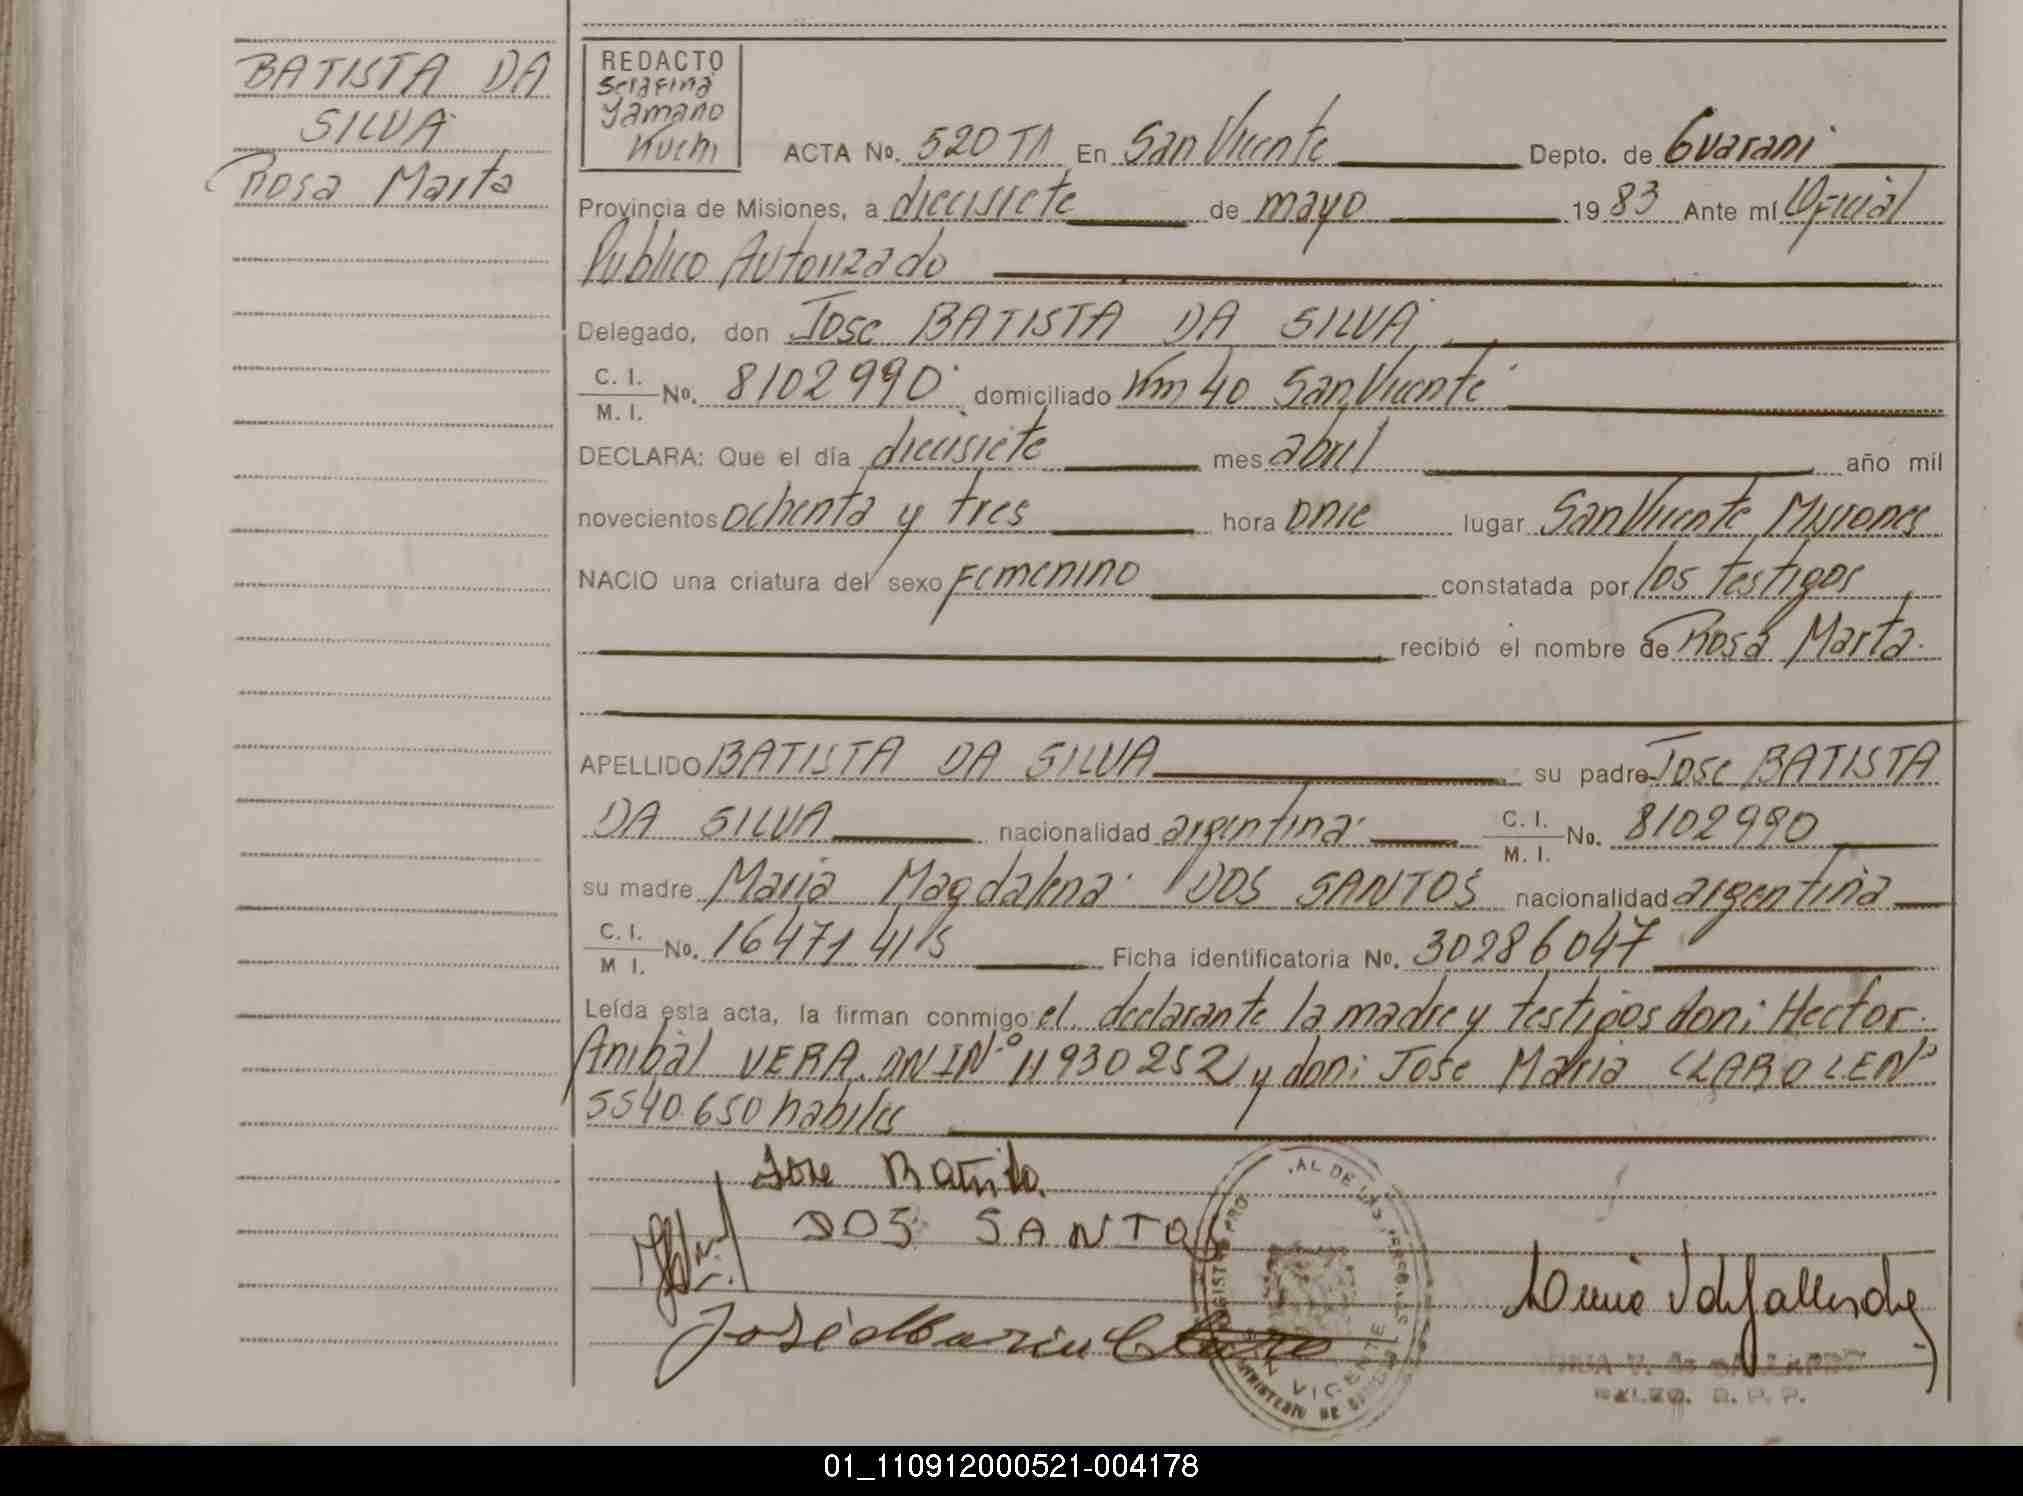 BATISTA DA
SILVA
Rosa Marta
REDACTO
Serafina
Yamano
Kuchi
ACTA No. 520 TI En San Vicente Depto. de Guarani
Provincia de Misiones, a diecisiete de mayo 1983 Ante mí Oficial
Publico Autorizado
Delegado, don Jose BATISTA DA SILVA
C. I.
M. I. No. 8102990 domiciliado Km 40 San Vicente
DECLARA: Que el día diecisiete mes abril año mil
novecientos ochenta y tres hora once lugar San Vicente Misiones
NACIO una criatura del sexo Femenino constatada por los testigos
recibió el nombre de Rosa Marta.
APELLIDO BATISTA DA SILVA su padre Jose BATISTA
DA SILVA nacionalidad argentina C. I.
M. I. No. 8102990
su madre Maria Magdalena DOS SANTOS nacionalidad argentina
C. I.
M I. No. 16471 415 Ficha identificatoria No. 30286047
Leída esta acta, la firman conmigo el declarante la madre y testigos don: Hector
Anibal VERA. DNI Nº 11930252 y don: Jose Maria CLARO LE Nº
5540.650 habiles
Jose Batista
DOS SANTOS
José Maria Claro
SAN VICENTE
01_110912000521-004178